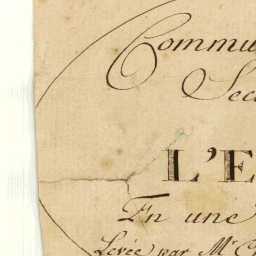 Commu
Sec
L'E
En une
Levée par Mr C